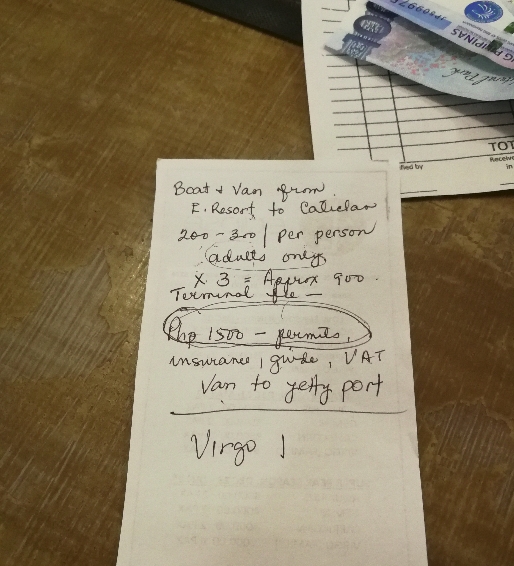 1P809976
PILIPINAS
TOT
Receive
ified by
in
Boat & Van from
E. Resort to Caticlan
200-300 | per person
(adults only)
X 3 = Approx 900.
Terminal fee —
Php 1500 - permits,
insurance, guide, VAT
Van to jetty port
Virgo 1